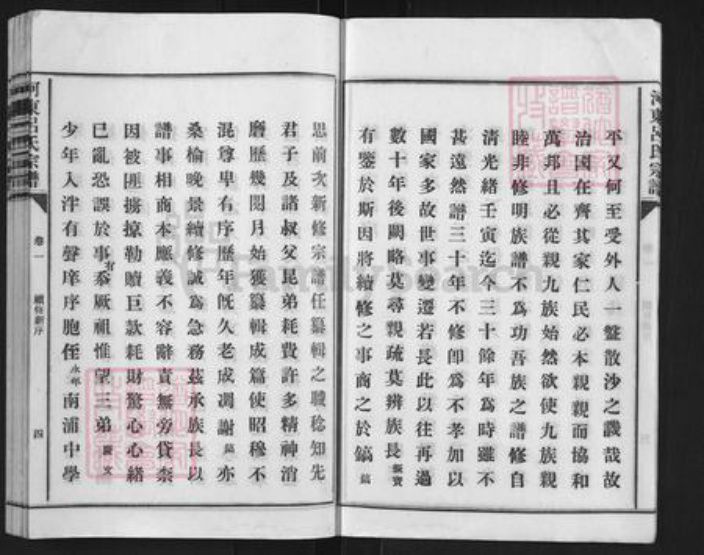 平又何至受外人一盤散沙之譏哉故
治國在齊其家仁民必本親親而協和
萬邦且必從親九族始然欲使九族親
睦非修明族譜不爲功吾族之譜修自
清光緒壬寅迄今三十餘年爲時雖不
甚遠然譜三十年不修卽爲不孝加以
國家多故世事變遷若長此以往再過
數十年後闕略莫尋親疏莫辨族長
有鑒於斯因將續修之事商之於鎬鎬
思前次新修宗譜任纂輯之職稔知先
君子及諸叔父昆弟耗費許多精神消
磨歷幾閱月始獲纂輯成篇使昭穆不
混尊卑有序歷年旣久老成凋謝鎬亦
桑榆晚景續修誠爲急務茲承族長以
譜事相商本應義不容辭責無旁貸柰
因被匪擄掠勒贖巨款耗財驚心心緒
已亂恐誤於事有忝厥祖惟望三弟煥文
少年入泮有聲庠序胞侄永邨南浦中學
河東呂氏宗譜
卷一
續修新序
四
河東呂氏宗譜
FamilySearch